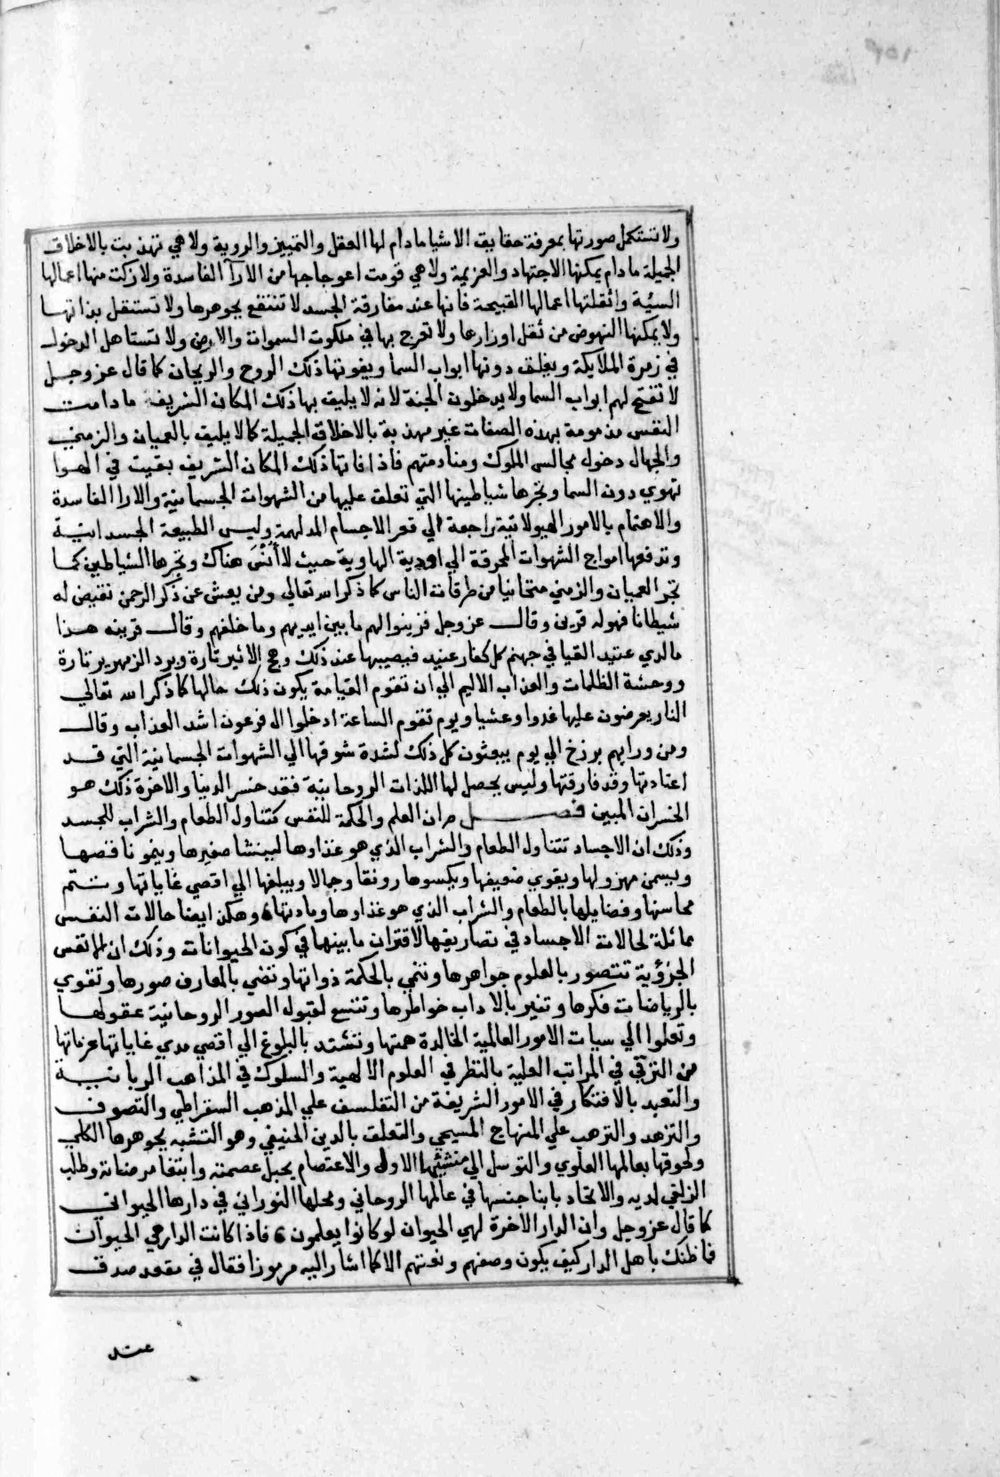 ولا تستكمل صورتها بمعرفة حقايق الاشيا مادام لها العقل والتمييز والروية ولا هي تهذبت بالاخلاق
الجميلة مادام يمكنها الاجتهاد والعزيمة ولا هي قومت اعوجاجها من الارآ الفاسدة ولا زكت منها اعمالها
السيئة واثقلتها اعمالها القبيحة فانها عند مفارقة الجسد لا تنتفع بجوهرها ولا تستقل بذاتها
ولا يمكنها النهوض من ثقل اوزارها ولا تعرج بها في ملكوت السموات والارض ولا تستاهل الدخول
في زمرة الملايكة ويغلق دونها ابواب السما ويفوتها ذلك الروح والريحان كما قال عز وجل
لا تفتح لهم ابواب السما ولا يدخلون الجنة لانه لا يليق بها ذلك المكان الشريف ما دامت
النفس مذمومة بهذه الصفات غير مهذبة بالاخلاق الجميلة كما لا يليق بالعميان والزمني
والجهال دخول مجالس الملوك ومنادمتهم فاذا فاتها ذلك المكان الشريف بقيت في الهوا
تهوي دون السما وتجرها شياطينها التي تعلق عليها من الشهوات الجسمانية والارا الفاسدة
والاهتمام بالامور الهيولانية راجعة الي قعر الاجسام المدلهمة وليس الطبيعة الجسدانية
وتدفعها امواج الشهوات المحرقة الي اودية الهاوية حيث لا أنس هناك وتجرها الشياطين كما
تجر العميان والزمني متجانبا من طرقات الناس كما ذكر الله تعالي ومن يعش عن ذكر الرحمن نقيض له
شيطانا فهو له قرين وقال عز وجل فزينوا لهم ما بين ايديهم وما خلفهم وقال قرينه هذا
مالدي عتيد القيا في جهنم كل كفار عنيد فيصيبها عند ذلك وهج الاثير تارة وبرد الزمهرير تارة
ووحشة الظلمات والعذاب الاليم الي ان تقوم القيامة يكون ذلك حالها كما ذكر الله تعالي
النار يعرضون عليها غدوا وعشيا ويوم تقوم الساعة ادخلوا ال فرعون اشد العذاب وقال
ومن ورايهم برزخ الي يوم يبعثون كل ذلك لشدة شوقها الي الشهوات الجسمانية التي قد
اعتادتها وقد فارقتها وليس يحصل لها اللذات الروحانية فقد خسر الدنيا والاخرة ذلك هو
الخسران المبين فصل من ان العلم والحكمة للنفس كتناول الطعام والشراب للجسد
وذلك ان الاجساد تتناول الطعام والشراب الذي هو غذاوها لينشا صغيرها وينمو ناقصها
ويسمن مهزولها ويقوي ضعيفها ويكسوها رونقا وجمالا ويبلغها الي اقصي غاياتها وتتم
محاسنها وفضايلها بالطعام والشراب الذي هو غذاوها ومادتها وهكذا ايضا حالات النفس
مماثلة لحالات الاجساد في تصاريفها لاقتران ما بينهما في كون الحيوانات وذلك ان الانفس
الجزؤية تتصور بالعلوم جواهرها وتنمي بالحكمة ذواتها وتضي بالمعارف صورها وتقوي
بالرياضات فكرها وتنير بالاداب خواطرها وتتسع لقبول الصور الروحانية عقولها
وتعلوا الي سيات الامور العالمية الخالدة همتها وتشتد بالبلوغ الي اقصي مدي غاياتها عزماتها
من الترقي في المراتب العلية بالنظر في العلوم الالهية والسلوك في المذاهب الربانية
والتعبد بالافتكار في الامور الشريفة من التفلسف علي المذهب السقراطي والتصوف
والتزهد والترهب علي المنهاج المسيحي والتعلق بالدين الحنيفي وهو التشبه بجوهرها الكلي
ولحوقها بعالمها العلوي والتوسل الي منشيها الاول والاعتصام بحبل عصمته وابتغا مرضاته وطلب
الزلفي لديه والاتحاد بابنا جنسها في عالمها الروحاني ومحلها النوراني في دارها الحيواني
كما قال عز وجل وان الدار الاخرة لهي الحيوان لو كانوا يعلمون فاذا كانت الدار هي الحيوان
فما ظنك باهل الدار كيف يكون وصفهم ونعيتهم الا كما اشار اليه مرموزا فقال في مقعد صدق
عند